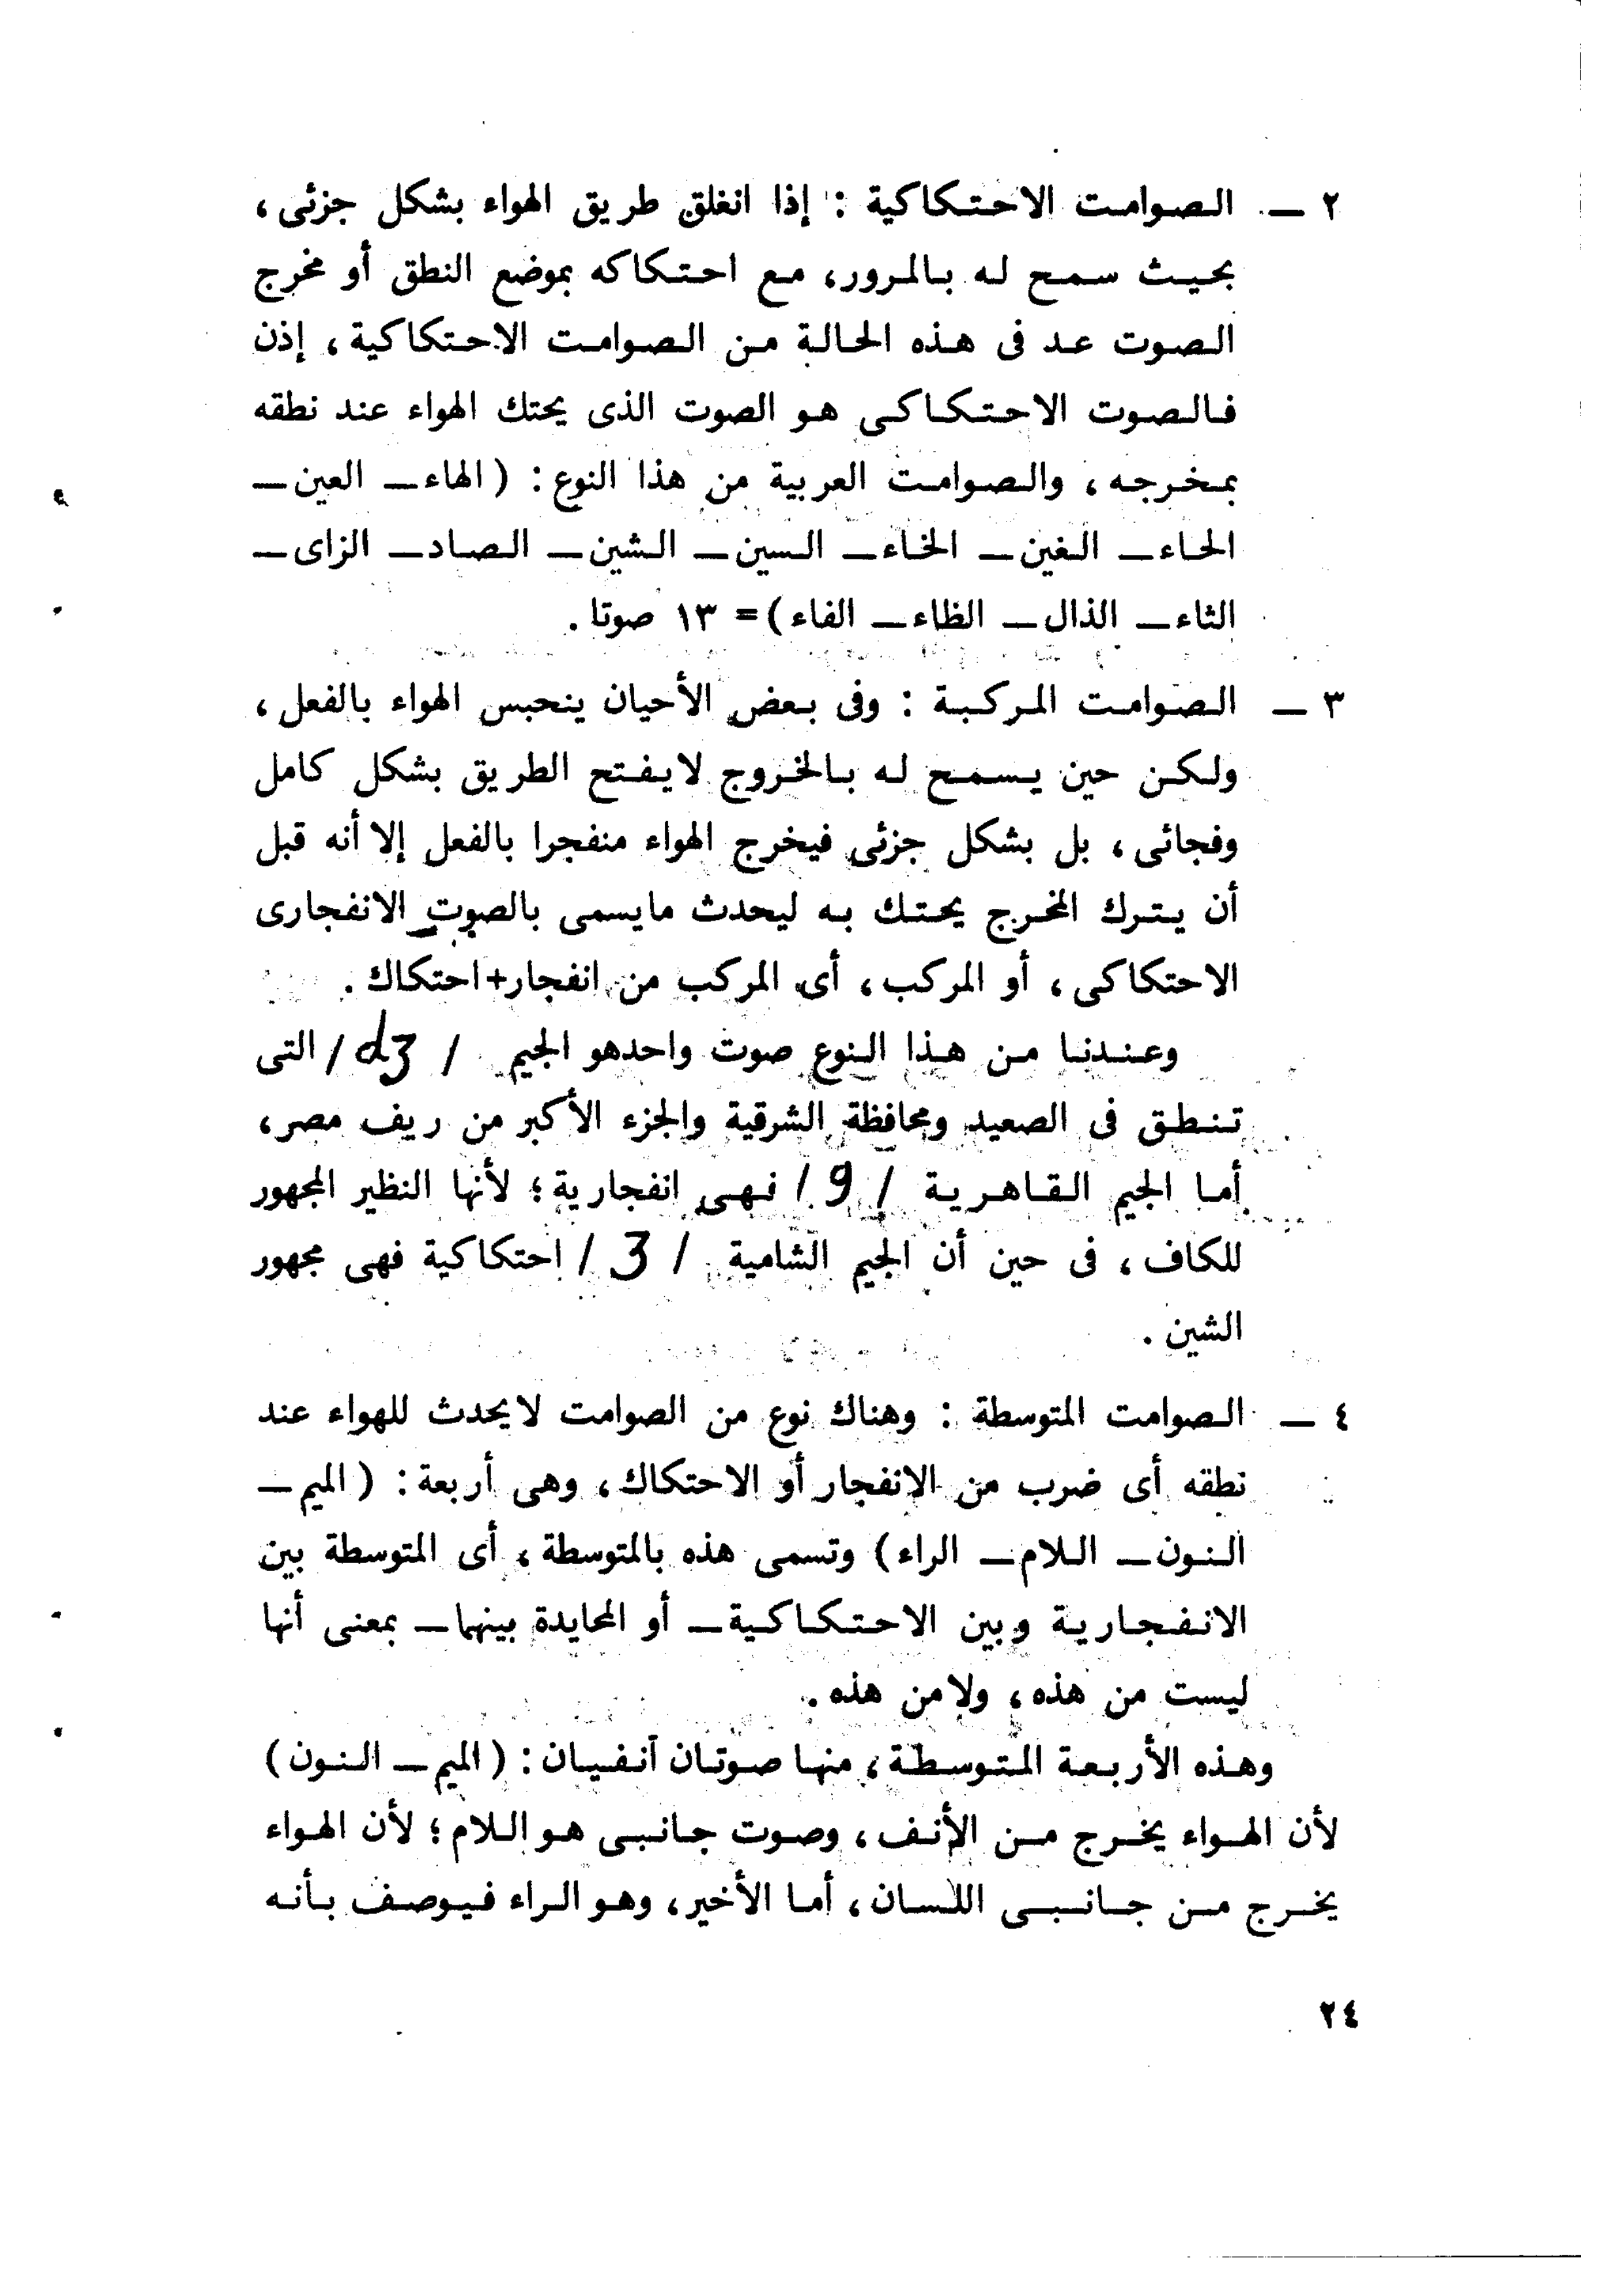 ٢ — الصوامت الاحتكاكية : إذا انغلق طريق الهواء بشكل جزئى ،
بحيث سمح له بالمرور ، مع احتكاكه بموضع النطق أو مخرج
الصوت عد فى هذه الحالة من الصوامت الاحتكاكية ، إذن
فالصوت الاحتكاكى هو الصوت الذى يحتك الهواء عند نطقه
بمخرجه ، والصوامت العربية من هذا النوع : ( الهاء — العين —
الحاء — الغين — الخاء — السين — الشين — الصاد — الزاى —
الثاء — الذال — الظاء — الفاء ) = ١٣ صوتا .
٣ — الصوامت المركبة : وفى بعض الأحيان ينحبس الهواء بالفعل ،
ولكن حين يسمح له بالخروج لايفتح الطريق بشكل كامل
وفجائى ، بل بشكل جزئى فيخرج الهواء منفجرا بالفعل إلا أنه قبل
أن يترك المخرج يحتك به ليحدث مايسمى بالصوت الانفجارى
الاحتكاكى ، أو المركب ، أى المركب من انفجار+احتكاك .
وعندنا من هذا النوع صوت واحدهو الجيم / dʒ / التى
تنطق فى الصعيد ومحافظة الشرقية والجزء الأكبر من ريف مصر ،
أما الجيم القاهرية / g / فهى انفجارية ؛ لأنها النظير المجهور
للكاف ، فى حين أن الجيم الشامية / ʒ / احتكاكية فهى مجهور
الشين .
٤ — الصوامت المتوسطة : وهناك نوع من الصوامت لايحدث للهواء عند
نطقه أى ضرب من الإنفجار أو الاحتكاك ، وهى أربعة : ( الميم —
النون — اللام — الراء ) وتسمى هذه بالمتوسطة ، أى المتوسطة بين
الانفجارية وبين الاحتكاكية — أو المحايدة بينهما — بمعنى أنها
ليست من هذه ، ولامن هذه .
وهذه الأربعة المتوسطة ، منها صوتان أنفيان : ( الميم — النون )
لأن الهواء يخرج من الأنف ، وصوت جانبى هو اللام ؛ لأن الهواء
يخرج من جانبى اللسان ، أما الأخير ، وهو الراء فيوصف بأنه
٢٤